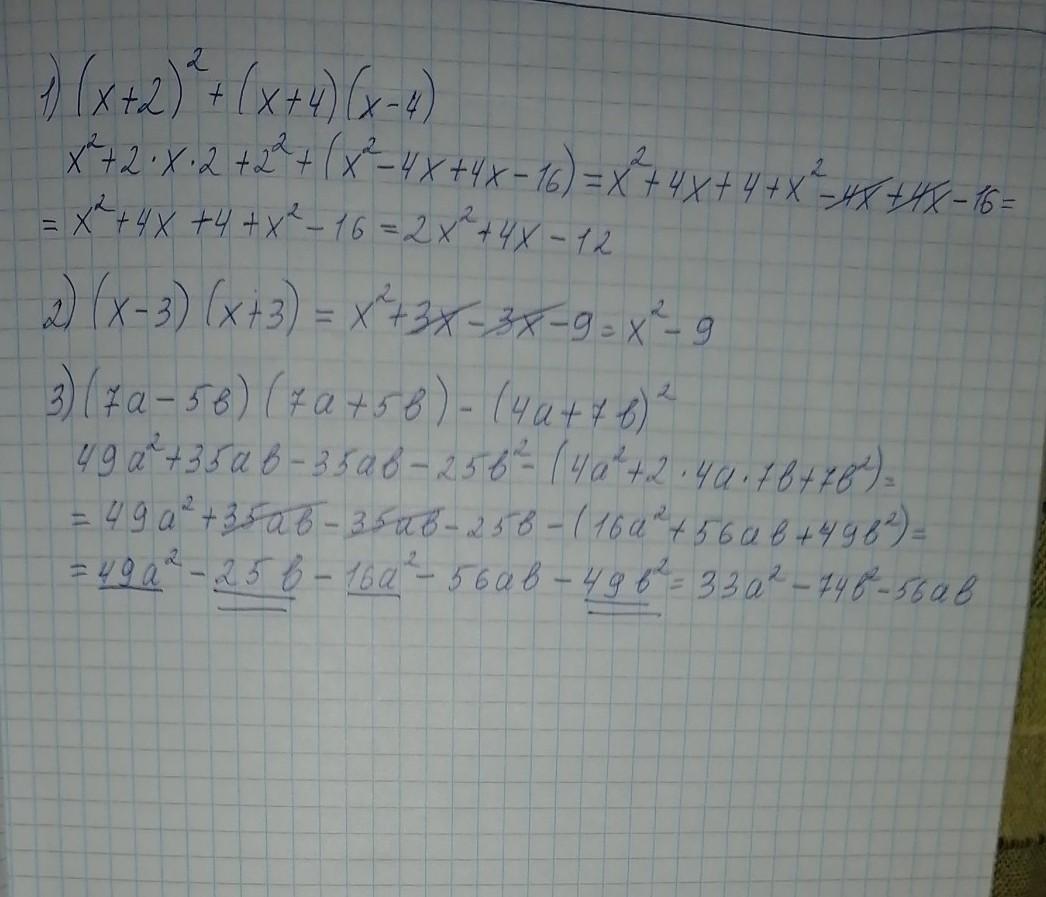 1) (x+2)² + (x+4)(x-4)
x²+2·x·2+2²+(x²-4x+4x-16)=x²+4x+4+x²-4x+4x-16=
= x²+4x+4+x²-16=2x²+4x-12
2) (x-3) (x+3) = x²+3x-3x-9=x²-9
3) (7a-5в) (7a+5в) - (4a+7в)²
49a²+35aв-35aв-25в²-(4a²+2·4a·7в+7в²)=
= 49a²+35aв-35aв-25в-(16a²+56aв+49в²)=
= 49a²-25в-16a²-56aв-49в²=33a²-74в²-56aв